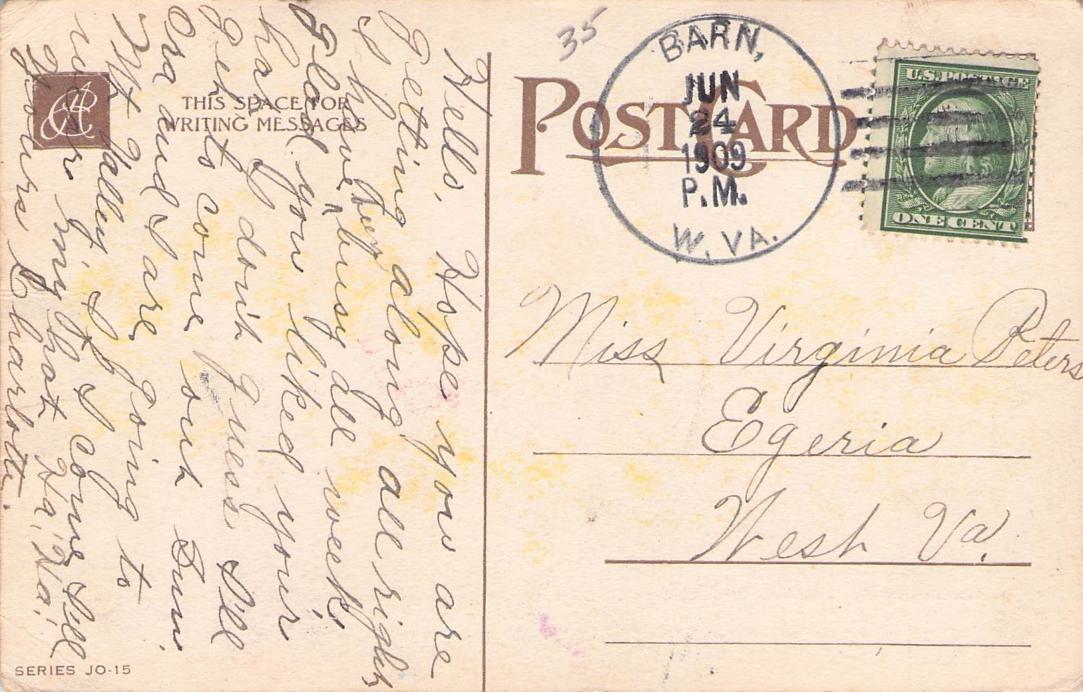 35
BARN,
JUN
24
1909
P.M.
W. VA.
U.S. POSTAGE
ONE CENT
POST CARD
THIS SPACE FOR
WRITING MESSAGES
Miss Virginia Peters
Egeria
West Va.
Hello, Hope you are
getting along all right,
I have been busy all week,
Glad you liked your
hat I don't guess I'll
get to come out Sun.
Ora and I are going to
Mt Valley, If I come I'll
my hat Ha! Ha!
Yours Charlott.
SERIES JO-15